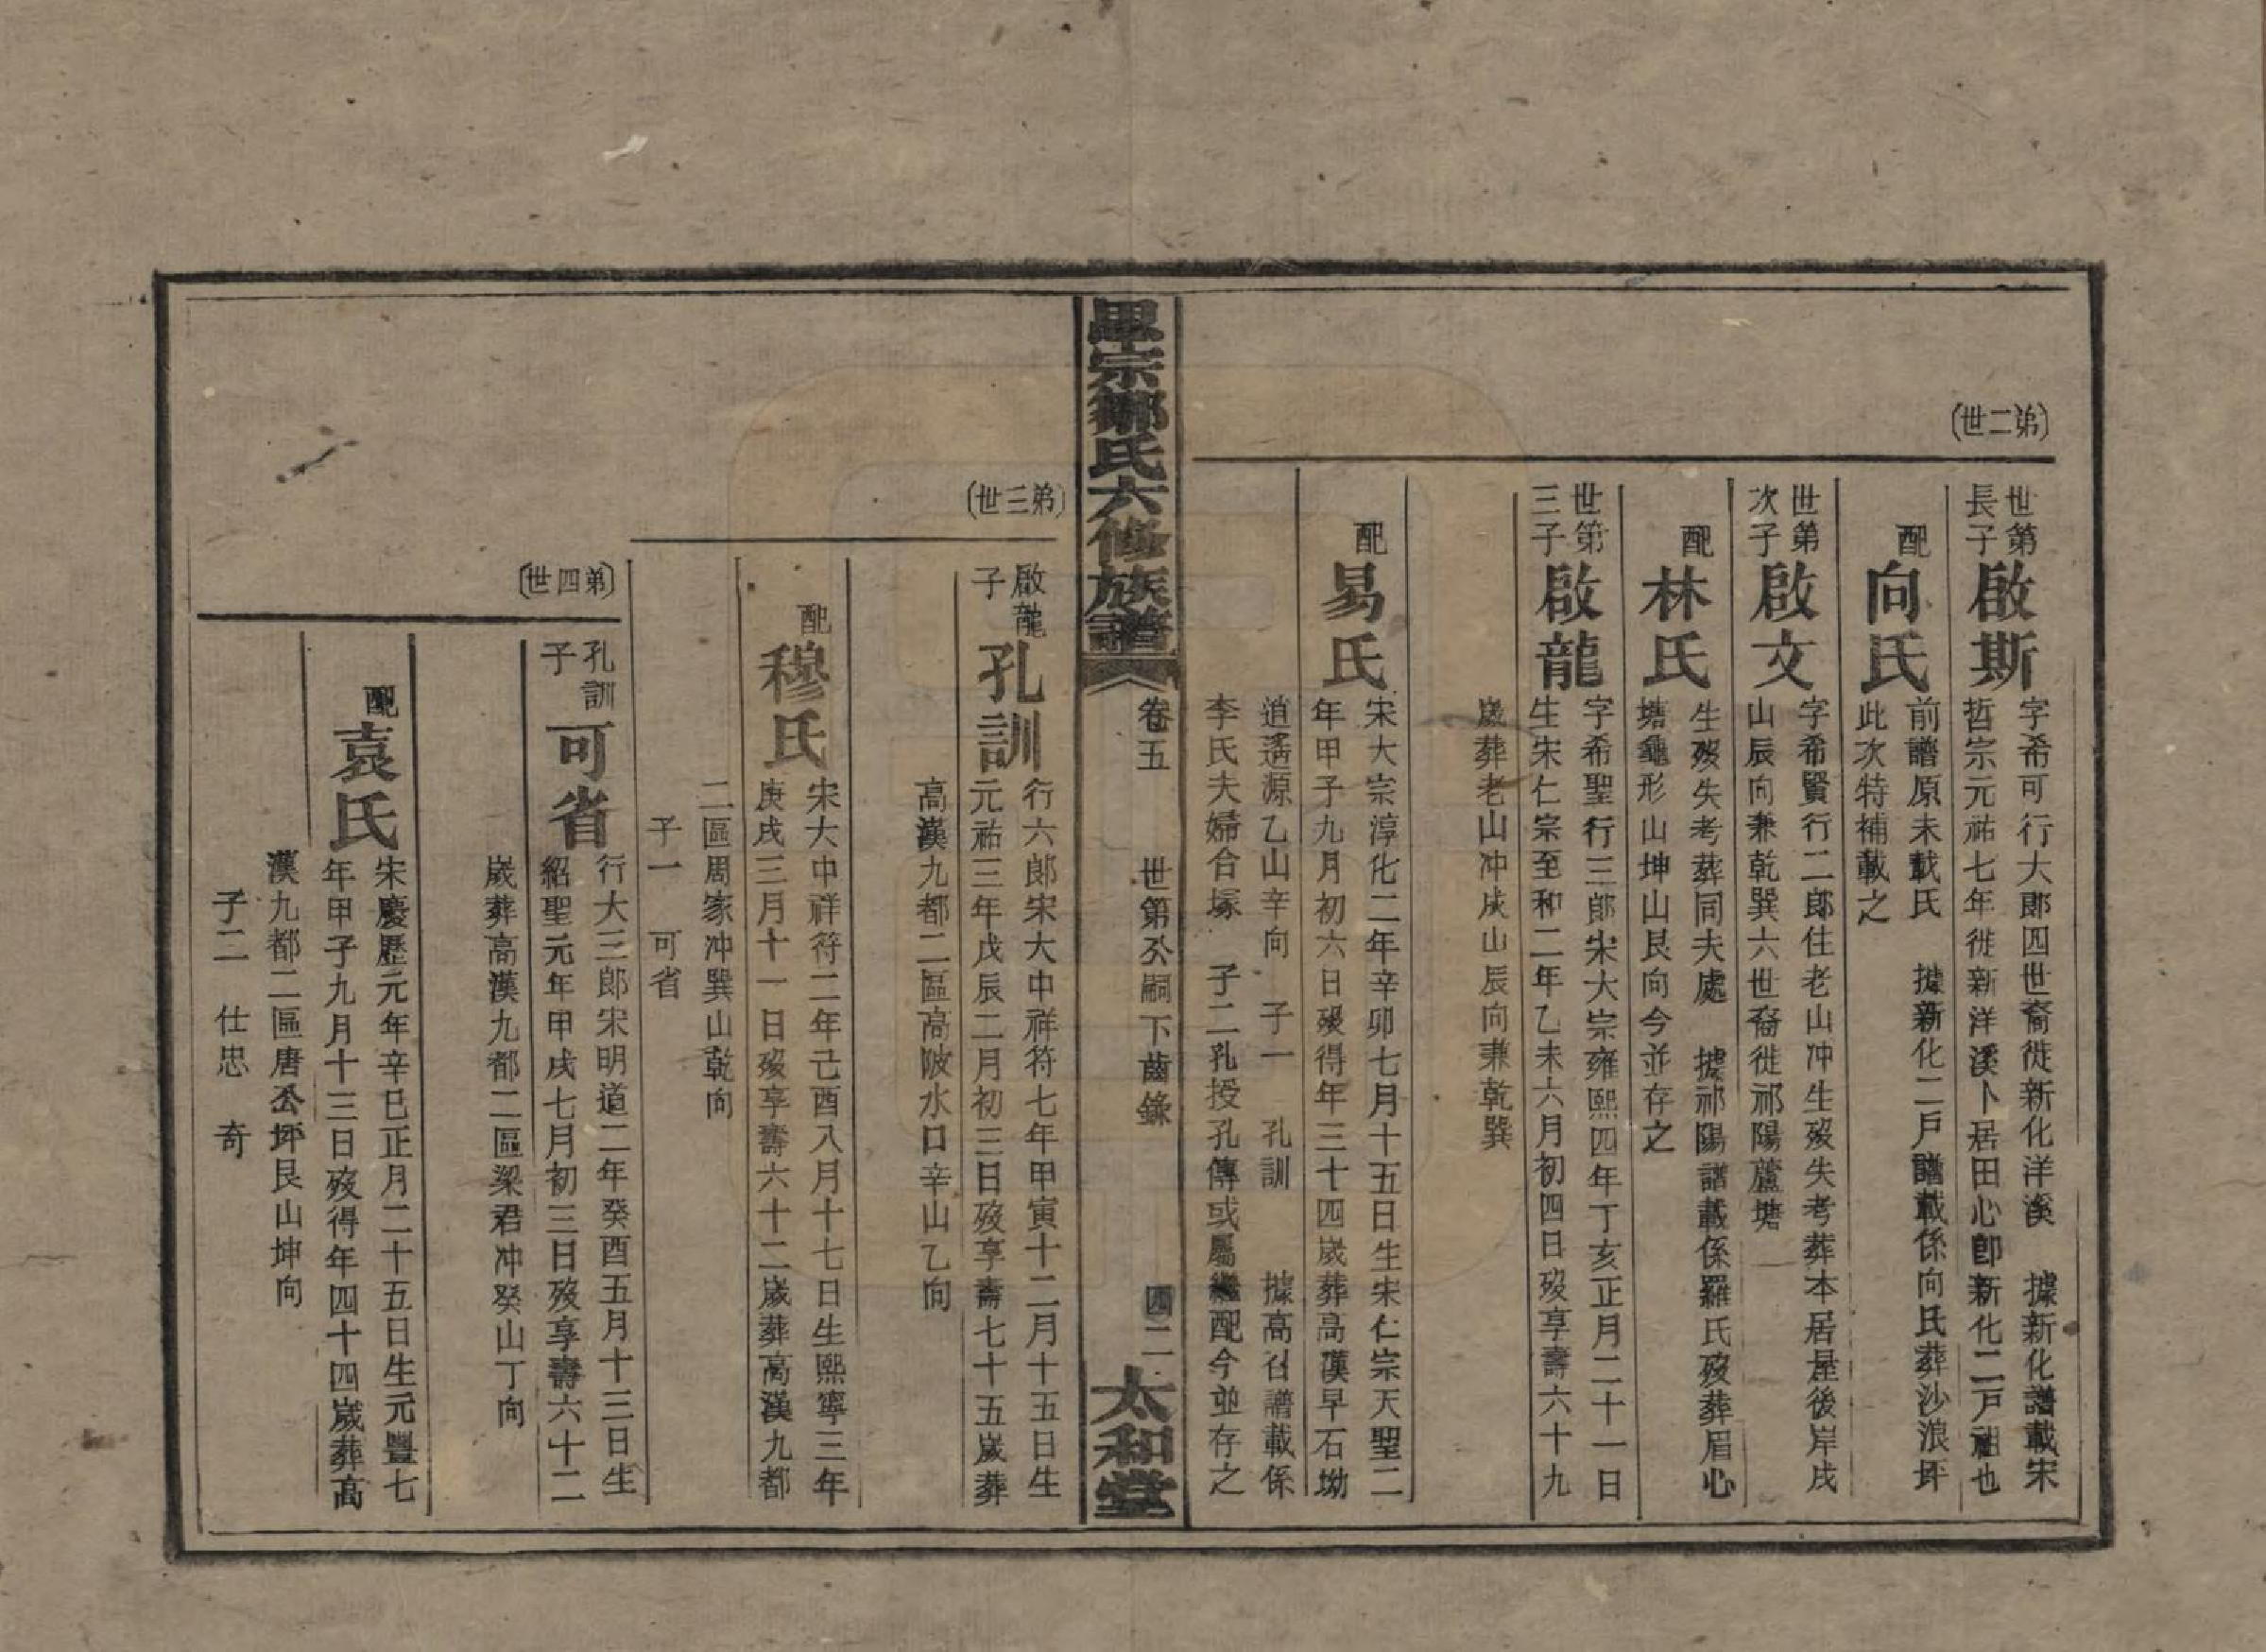 〔第二世〕
世第長子
啟斯
字希可行大郎四世裔徙新化洋溪　據新化譜載宋
哲宗元祐七年徙新洋溪卜居田心卽新化二戶祖也
配
向氏
前譜原未載氏　據新化二戶譜載係向氏葬沙浪坪
此次特補載之
世第次子
啟文
字希賢行二郎住老山冲生歿失考葬本居屋後岸戌
山辰向兼乾巽六世裔徙祁陽蘆塘
配
林氏
生歿失考葬同夫處　據祁陽譜載係羅氏歿葬眉心
塘龜形山坤山艮向今並存之
世第三子
啟龍
字希聖行三郎宋大宗雍熙四年丁亥正月二十一日
生宋仁宗至和二年乙未六月初四日歿享壽六十九
歲葬老山冲戌山辰向兼乾巽
配
易氏
宋大宗淳化二年辛卯七月十五日生宋仁宗天聖二
年甲子九月初六日歿得年三十四歲葬高漢早石坳
逍遙源乙山辛向　子一　孔訓　據高召譜載係
李氏夫婦合塚　子二孔授孔傳或屬繼配今並存之
思宗鄒氏六修族譜
卷五
世第公嗣下齒錄
四二
太和堂
〔第三世〕
啟龍子
孔訓
行六郎宋大中祥符七年甲寅十二月十五日生
元祐三年戊辰二月初三日歿享壽七十五歲葬
高漢九都二區高陂水口辛山乙向
配
穆氏
宋大中祥符二年己酉八月十七日生熙寧三年
庚戌三月十一日歿享壽六十二歲葬高漢九都
二區周家冲巽山乾向
子一　可省
〔第四世〕
孔訓子
可省
行大三郎宋明道二年癸酉五月十三日生
紹聖元年甲戌七月初三日歿享壽六十二
歲葬高漢九都二區梁君冲癸山丁向
配
袁氏
宋慶歷元年辛巳正月二十五日生元豐七
年甲子九月十三日歿得年四十四歲葬高
漢九都二區唐公坪艮山坤向
子二　仕忠　奇